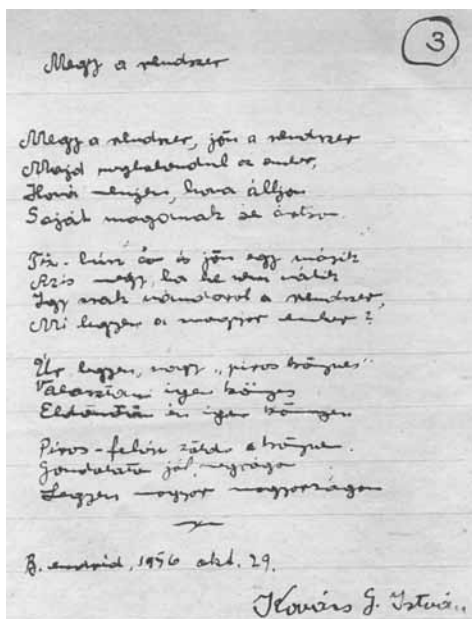 3
Megy a rendszer
Megy a rendszer, jön a rendszer
Majd megbolondul az ember,
Hová menjen, hova álljon
Saját magának se ártson.
Tíz-húsz év és jön egy másik
Az is megy, ha be nem válik
Így csak vándorol a rendszer,
Mi legyen a magyar ember?
Úr legyen, vagy „piros könyves"
Választani igen könyes
Eldönteni én igen könnyen
Piros-fehér zöld a könyvem.
Gondolata jól megrágva
Legyen magyar magyarországon
B. , 1956 okt. 29.
Kovács G. István